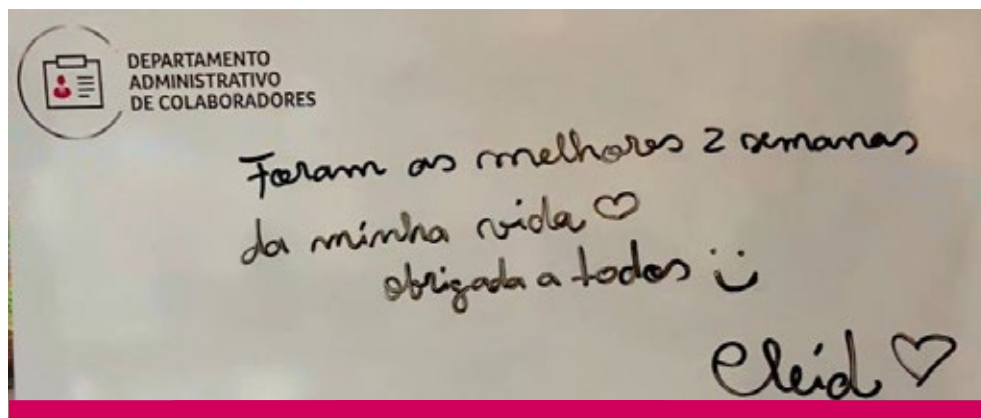 DEPARTAMENTO
ADMINISTRATIVO
DE COLABORADORES
Foram as melhores 2 semanas
da minha vida ♡
obrigada a todos
Cleid ♡